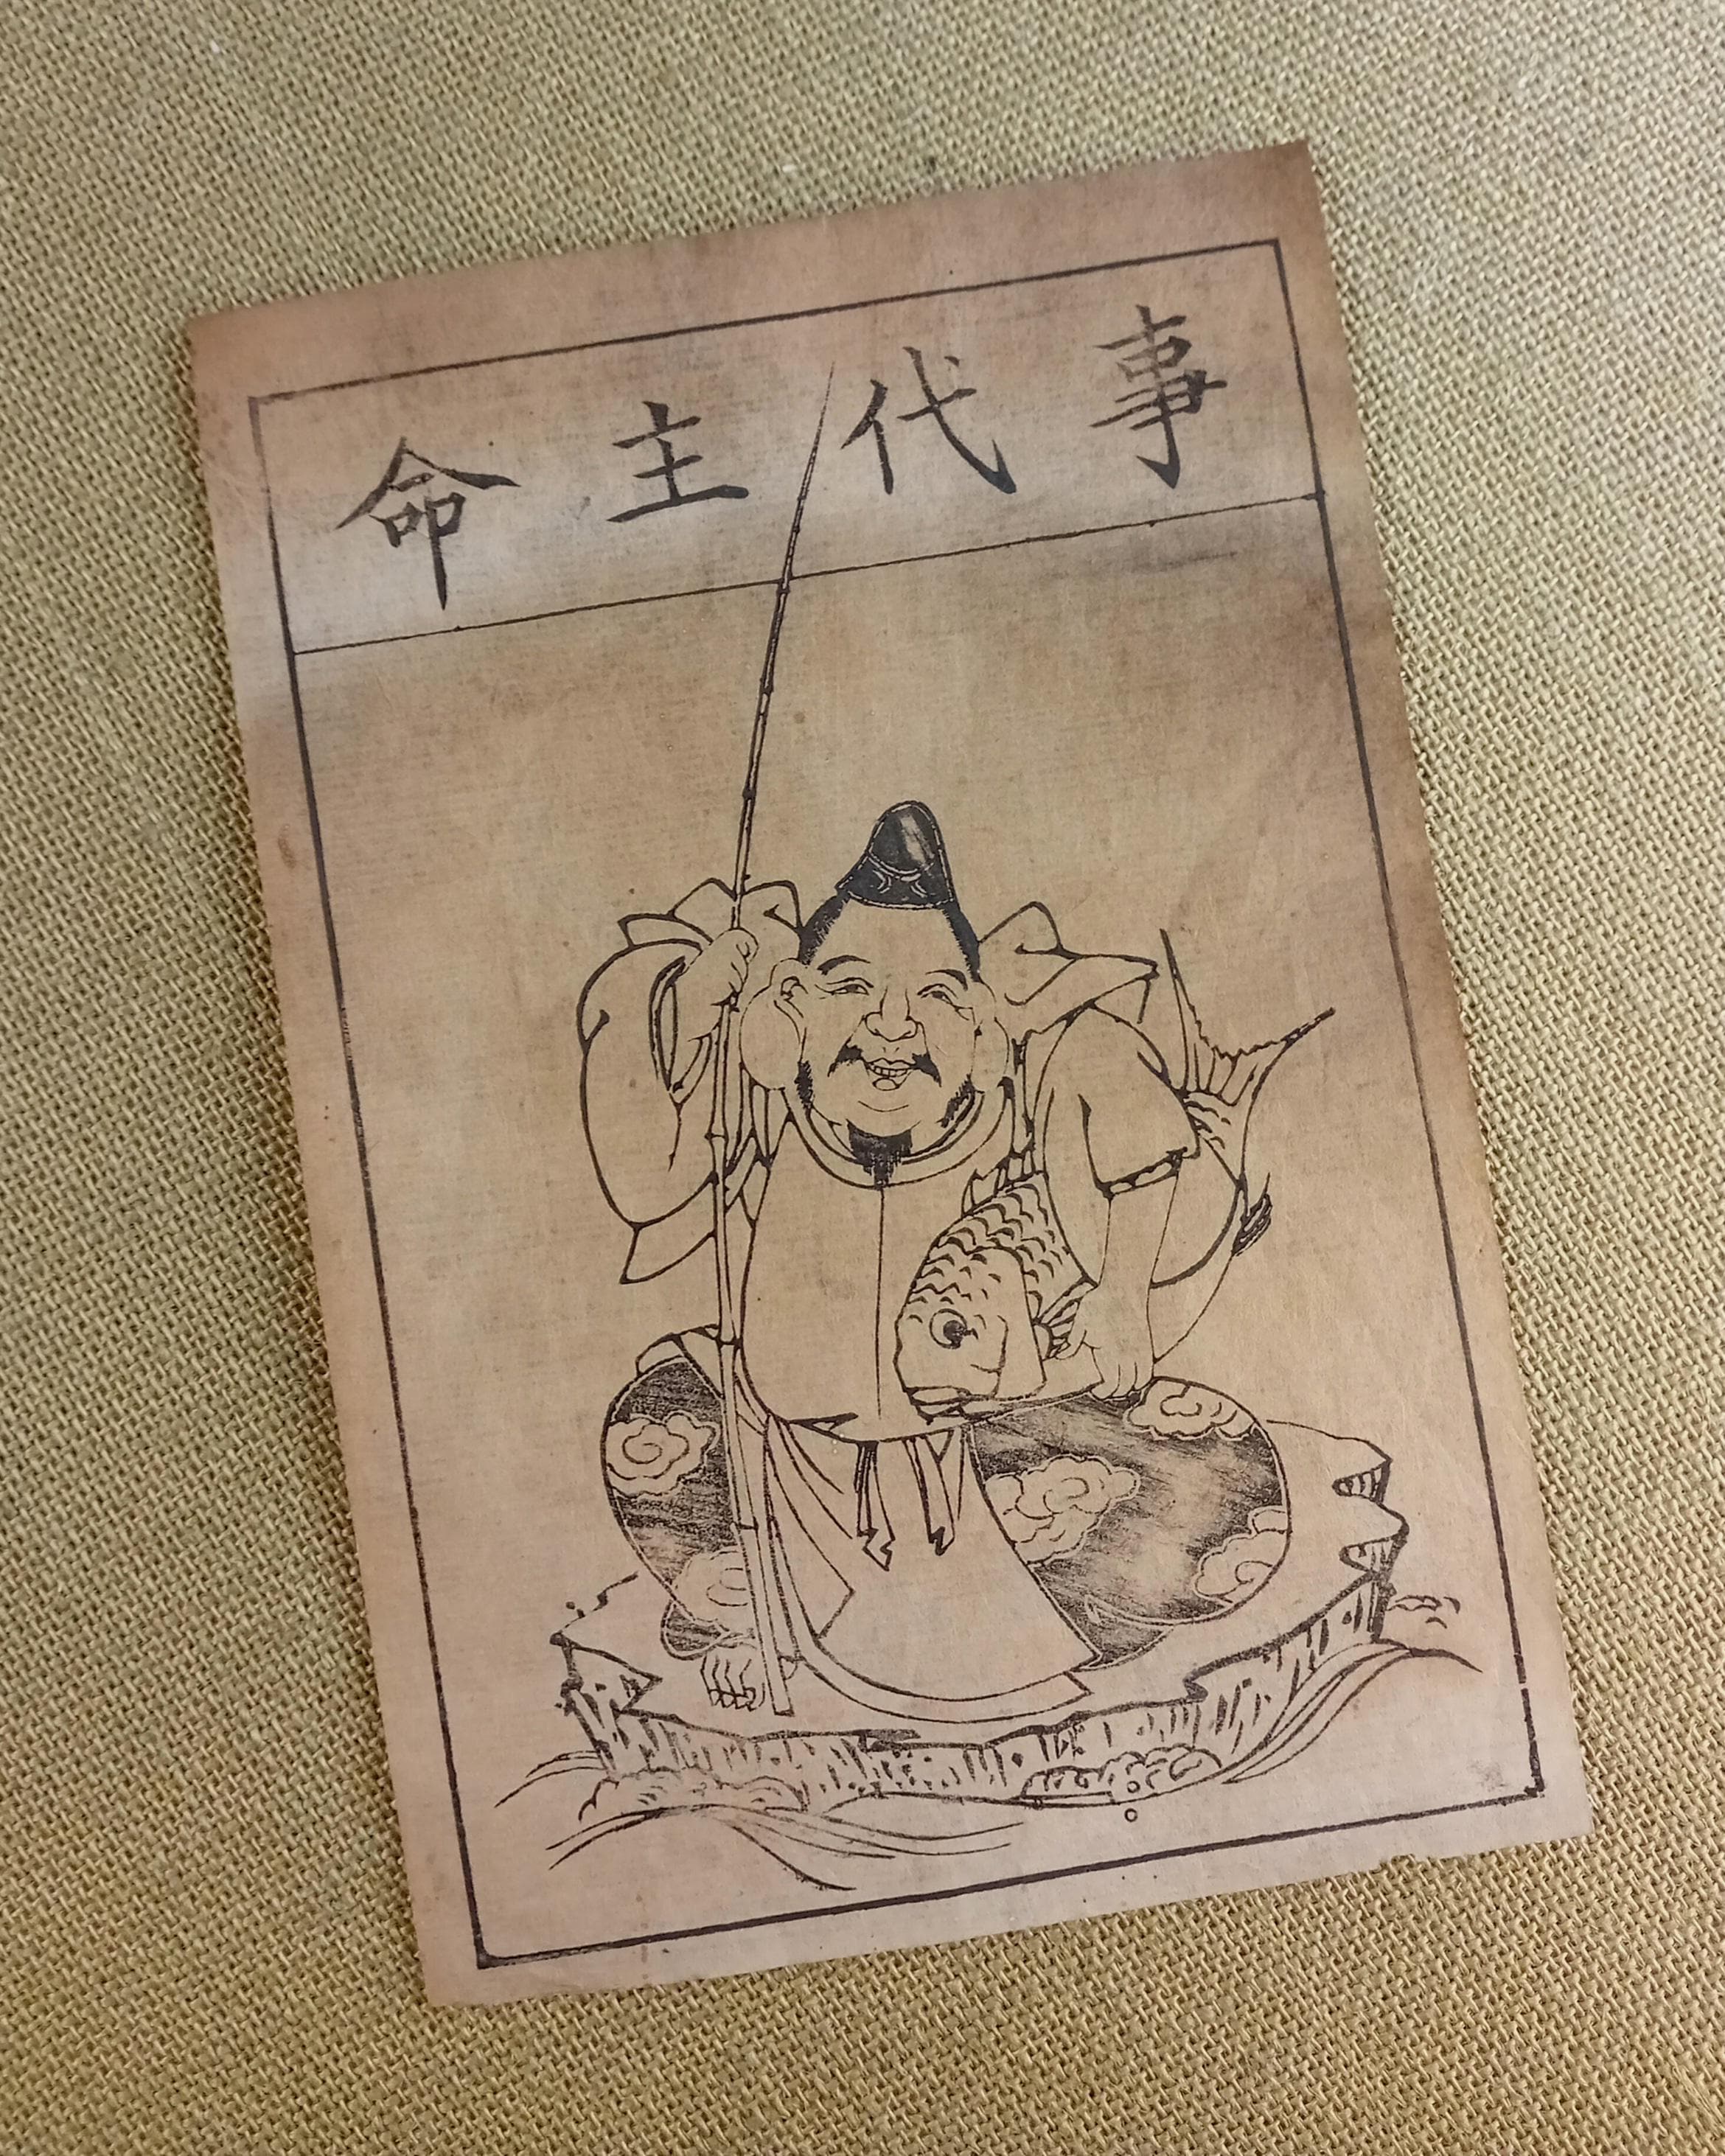 事代主命